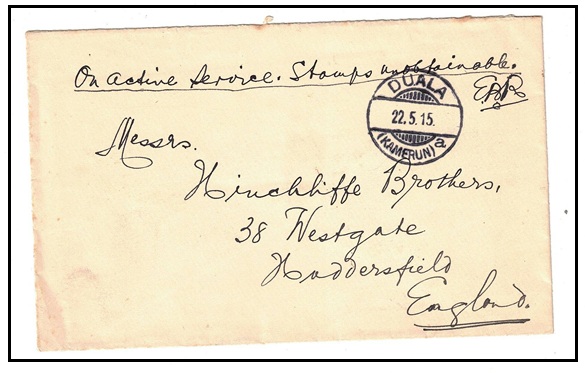 On Active Service. Stamps unobtainable.
DUALA
22.5.15.
(KAMERUN) a
Messrs.
Hinchliffe Brothers,
38 Westgate
Huddersfield
England.